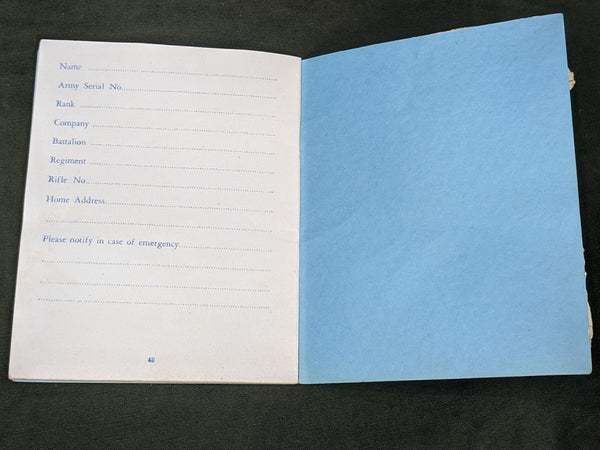 Name
Army Serial No.
Rank
Company
Battalion
Regiment
Rifle No.
Home Address
Please notify in case of emergency
40